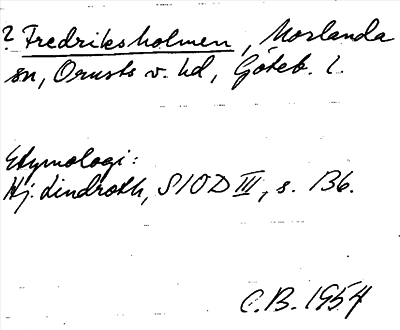 ? Fredriksholmen, Morlanda
sn, Orusts v. hd, Göteb. l.
Etymologi:
Hj. Lindroth, SIOD III, s. 136.
C.B. 1954